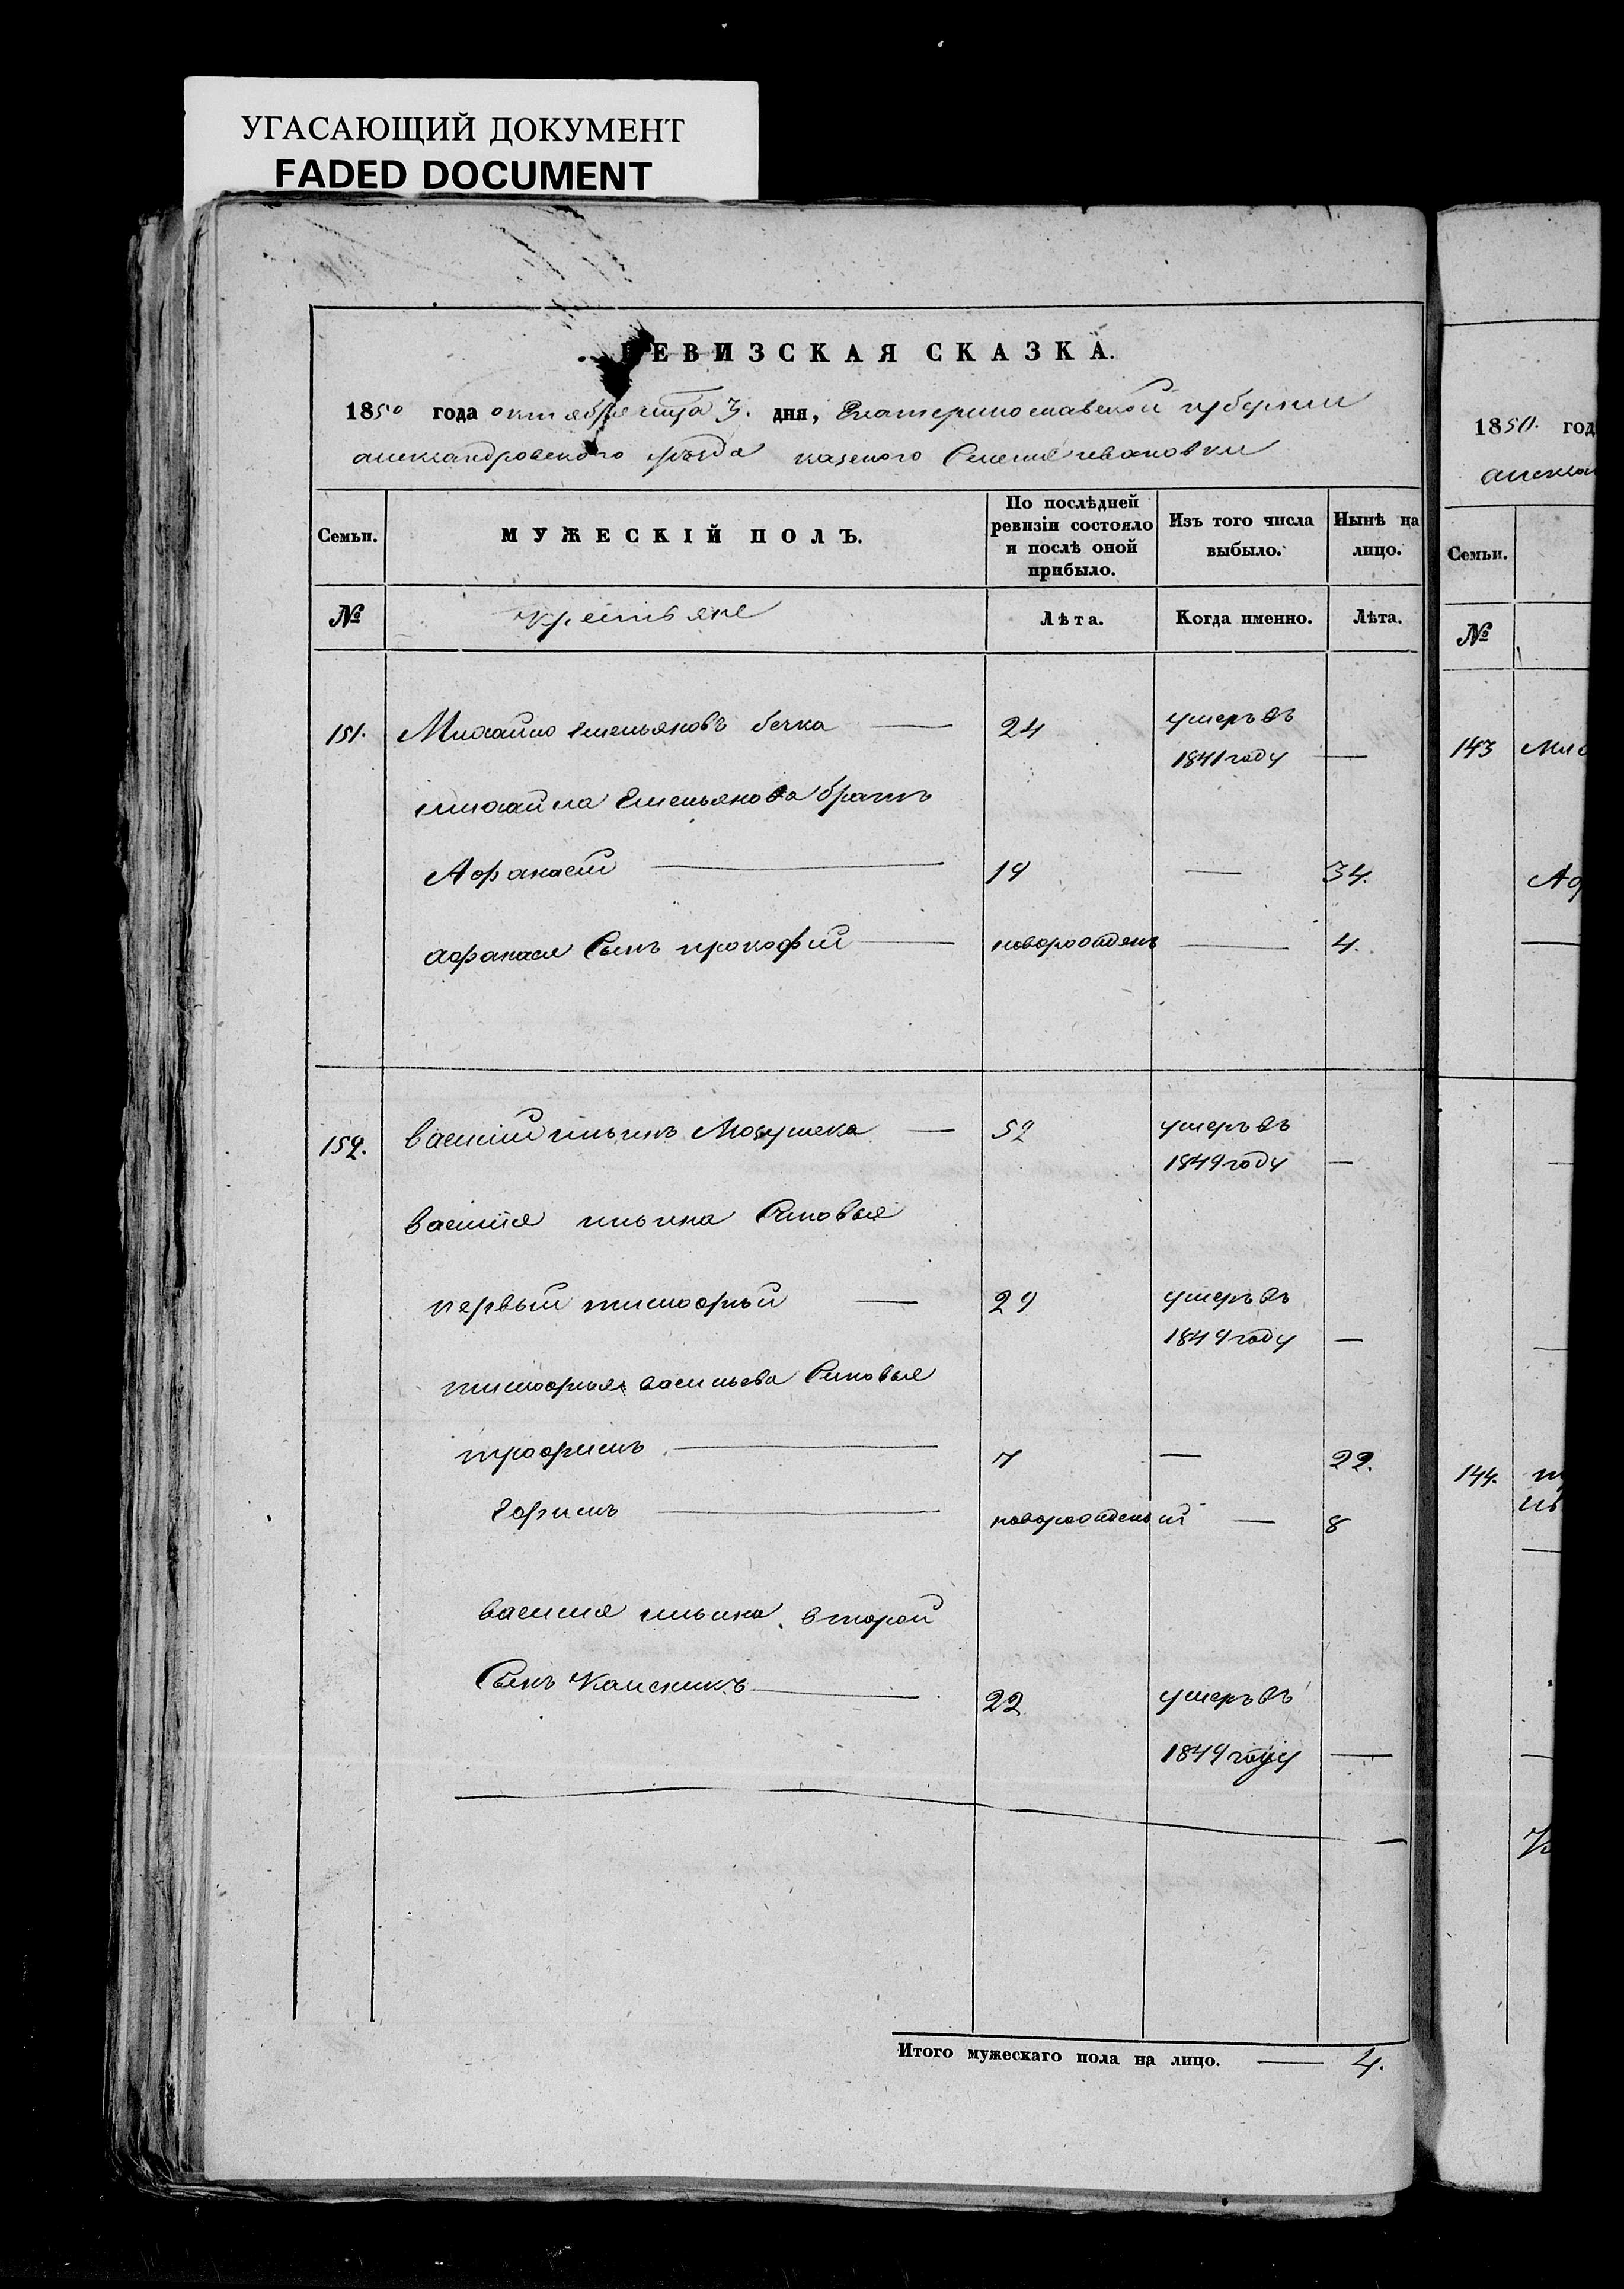 УГАСАЮЩИЙ ДОКУМЕНТ
FADED DOCUMENT
РЕВИЗСКАЯ СКАЗКА.
1850 года октября 3. дня, Екатеринославской губернии
александровского уѣзда казеного Селенiя ивановки
Семьи.
МУЖЕСКІЙ ПОЛЪ.
По послѣдней
ревизіи состояло
и послѣ оной
прибыло.
Изъ того числа
выбыло.
Нынѣ на
лицо.
№
крестьяне
Лѣта.
Когда именно.
Лѣта.
151. Михайло Емельяновъ бечка — 24 умеръ въ
1841 году —
михайла Емельянова братъ
Афанасiй — 19 — 34.
афанася Сынъ прокофiй — новорожденъ — 4.
152. василiй ильинъ — 52 умеръ въ
1849 году —
василiя ильина Синовья
первый тимофѣй — 29 умеръ въ
1849 году —
тимофѣя васильева Синовья
трофимъ — 7 — 22.
Ефимъ — новорожденый — 8
василя ильина второй
Сынъ — 22 умеръ въ
1849 году —
Итого мужескаго пола на лицо. — 4.
1850. год
алекса
Семьи.
№
143
144.